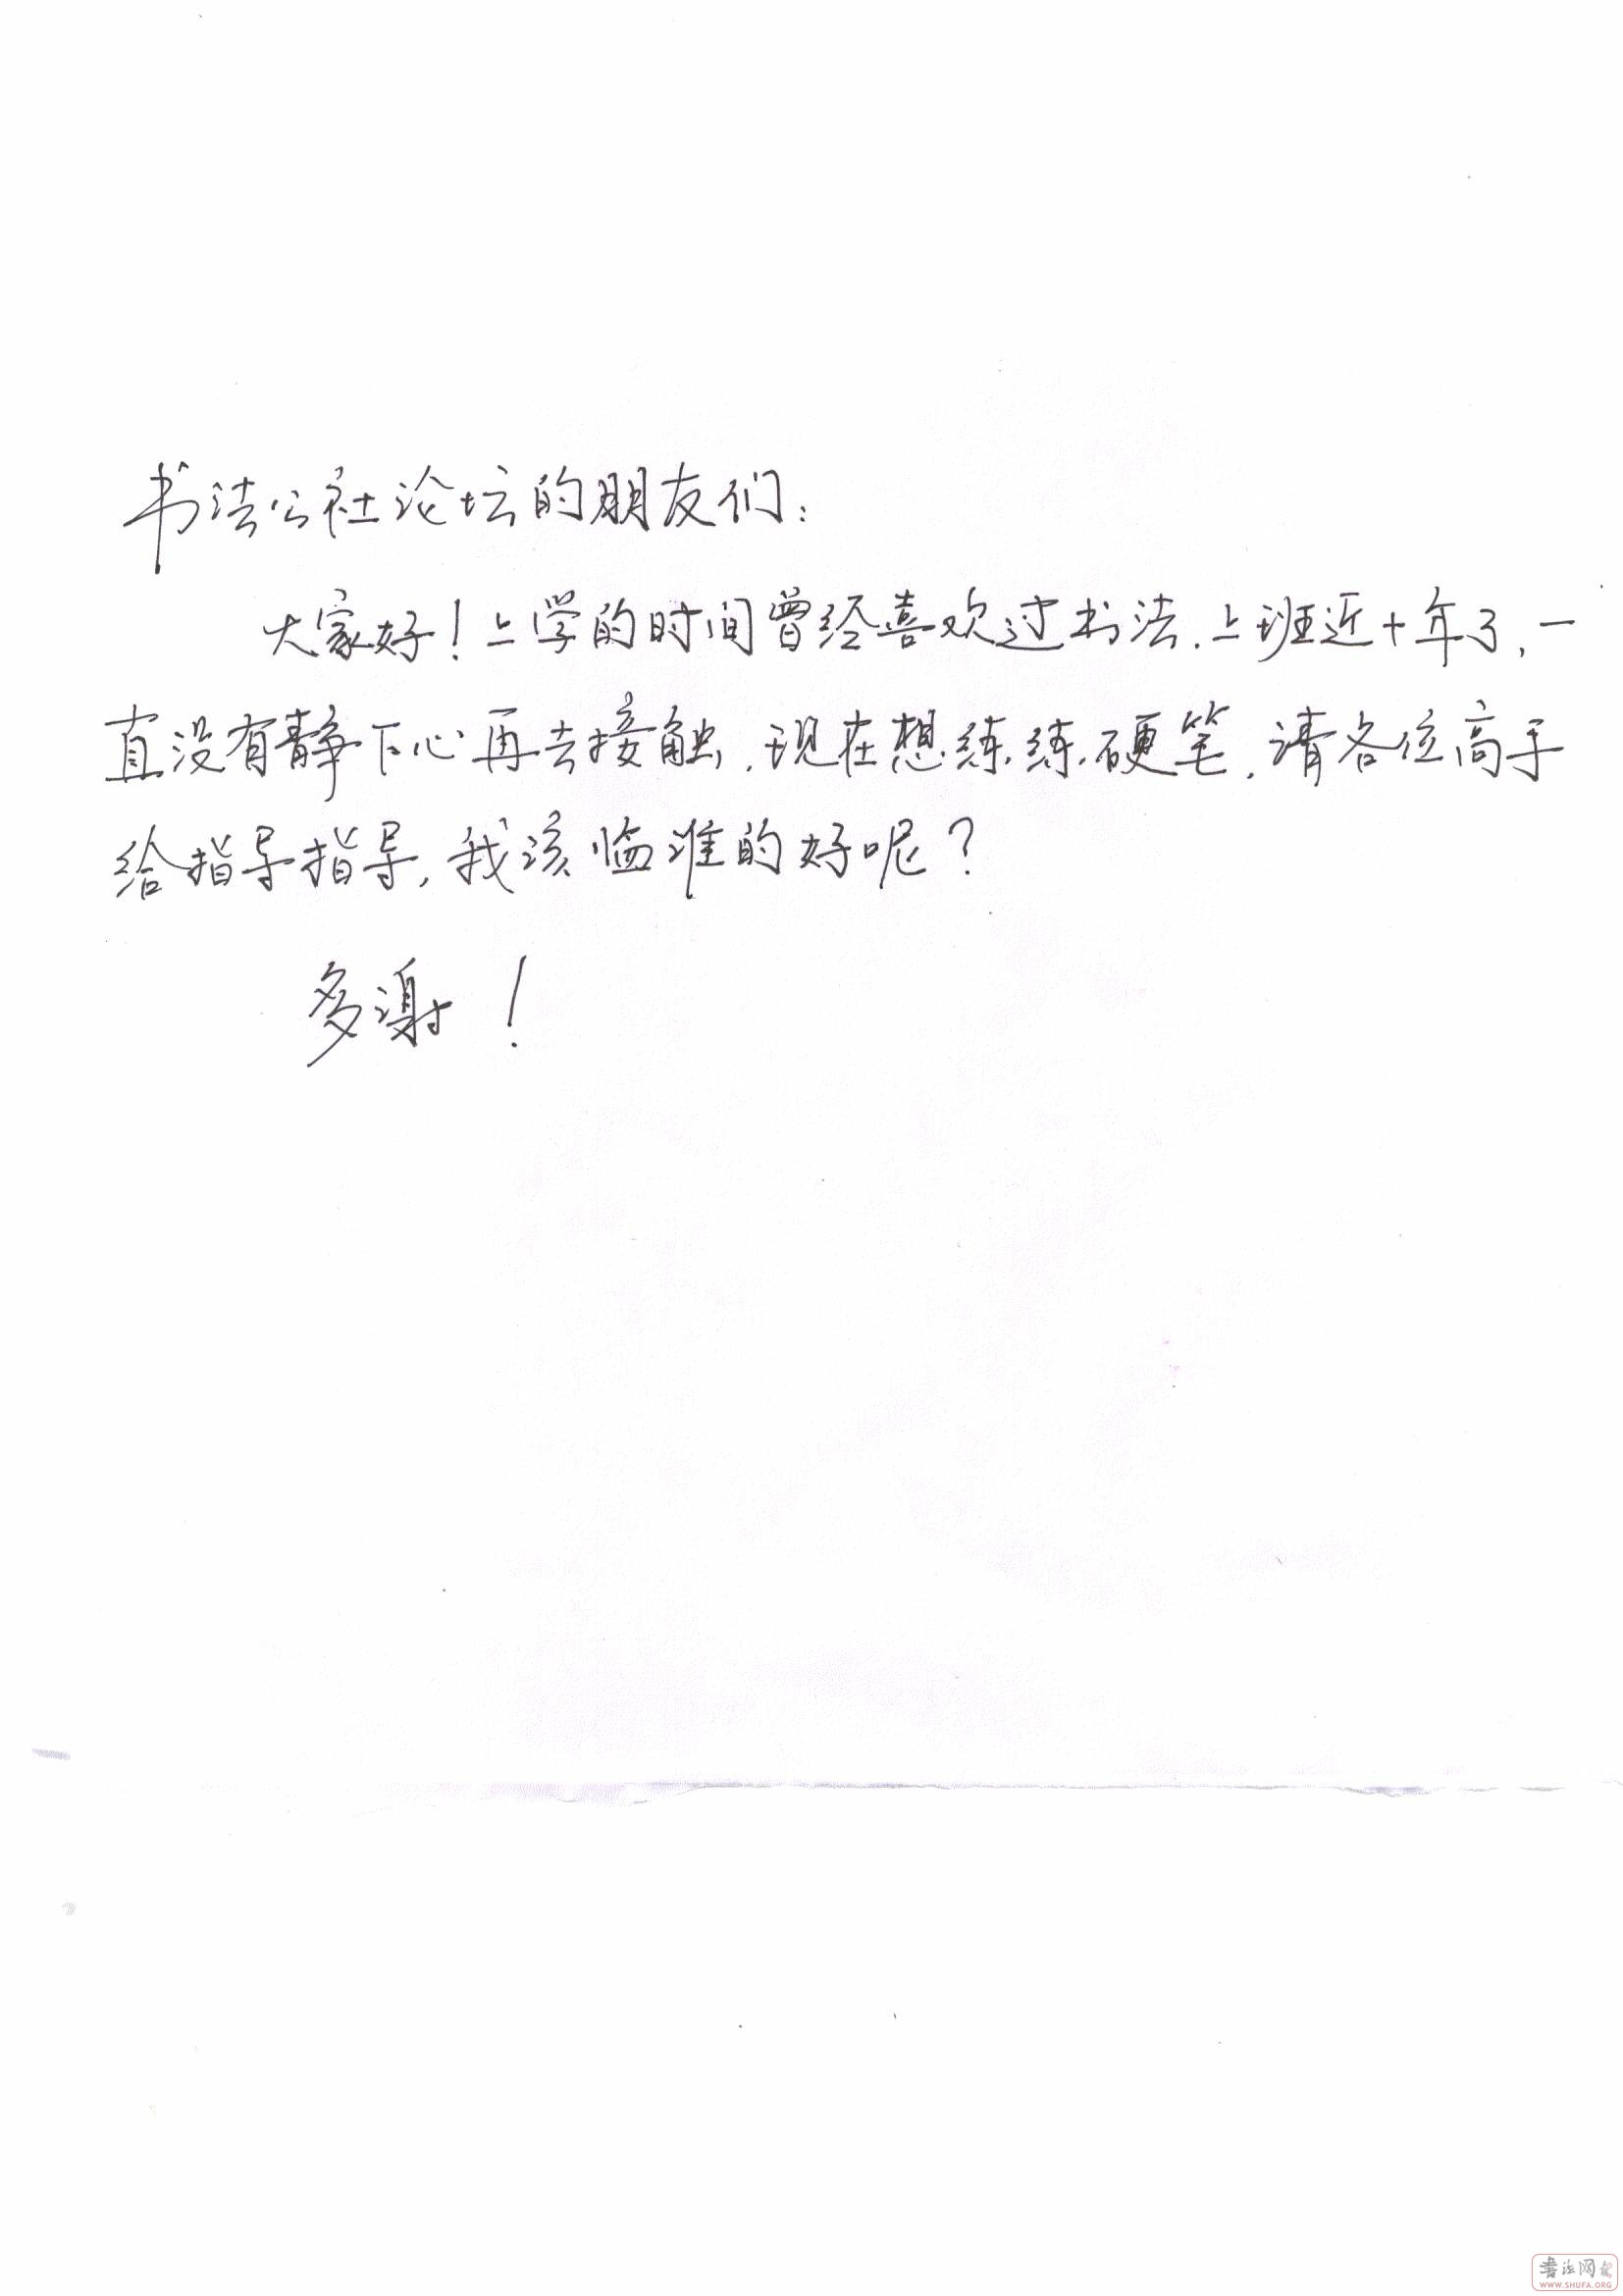 书法公社论坛的朋友们：
大家好！上学的时间曾经喜欢过书法，上班近十年了，一
直没有静下心再去接触，现在想练练硬笔，请各位高手
给指导指导，我该临谁的好呢？
多谢！
书法网
WWW.SHUFA.ORG